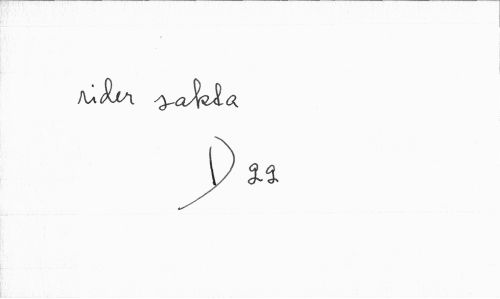 rider sakta
D 22